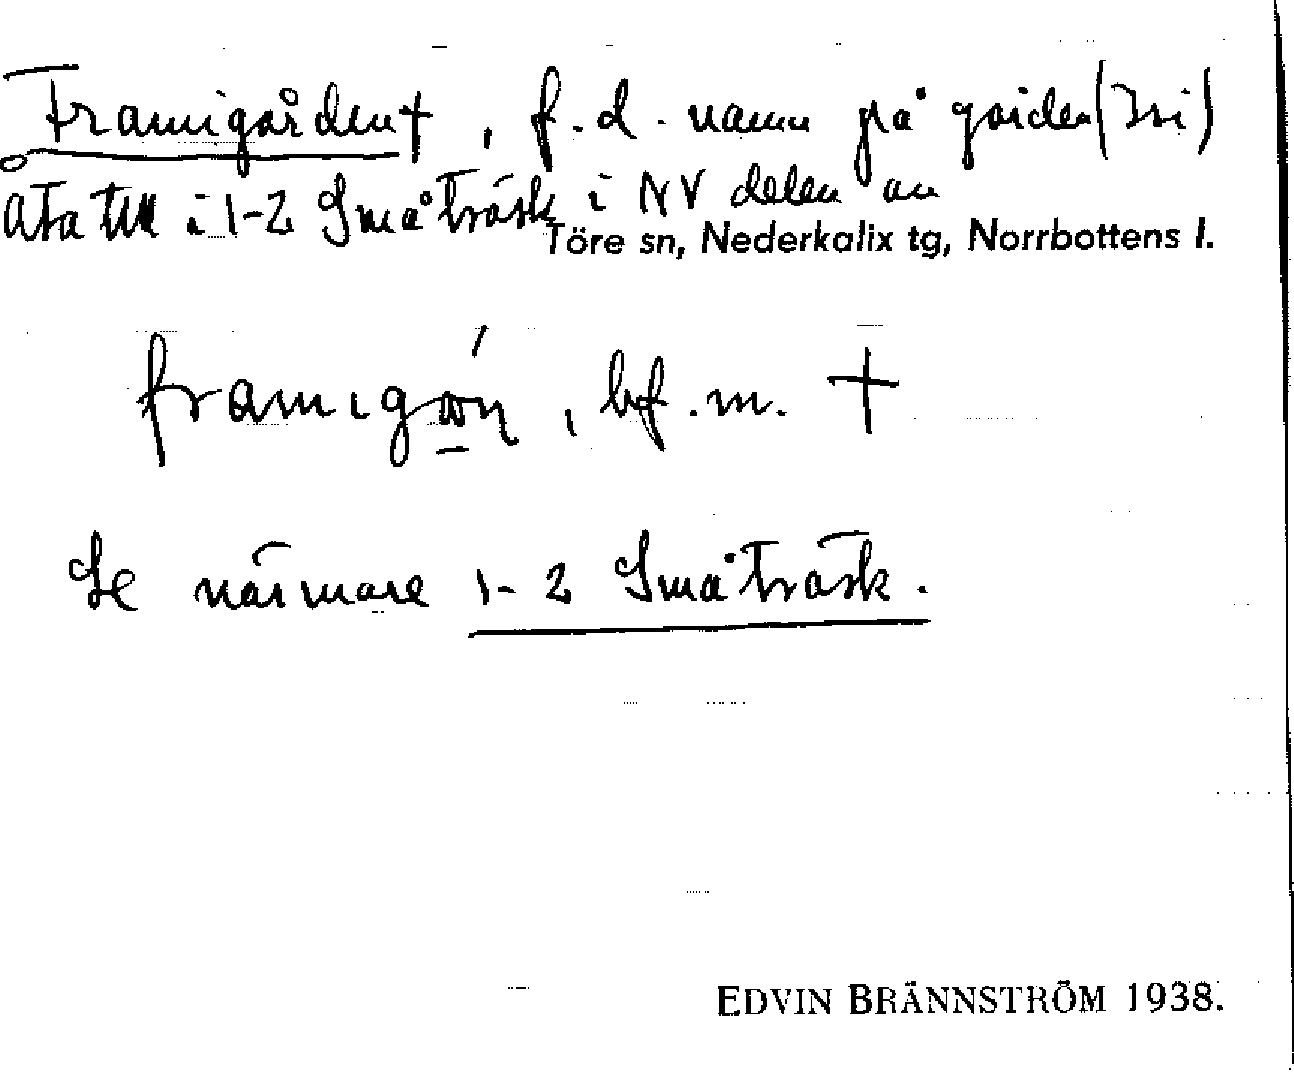 Framigården†, f.d. namn på gården
åta till i 1-2 Småträsk i NV delen av
Töre sn, Nederkalix tg, Norrbottens l.
framıgɷ́ṇ, bf. m. †
Se närmare 1-2 Småträsk.
EDVIN BRÄNNSTRÖM 1938.